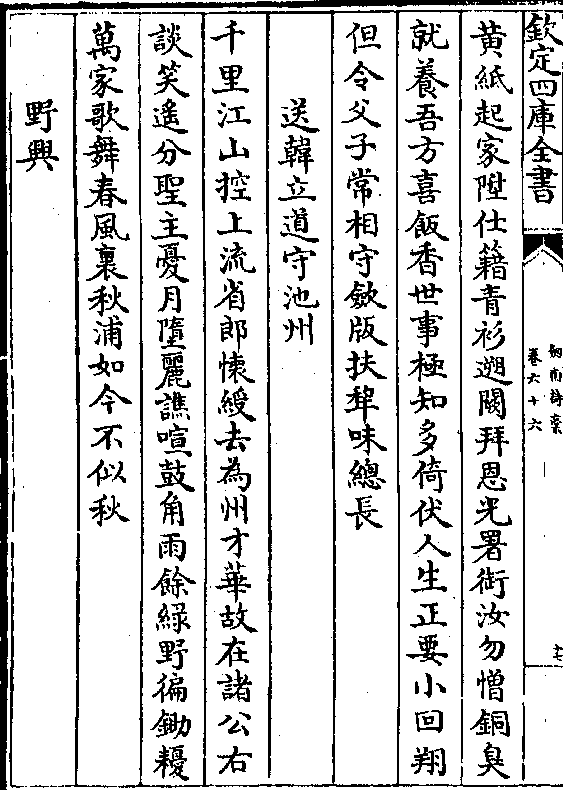 欽定四庫全書
劍南詩稾
卷六十六
黄紙起家陞仕籍青衫遡闕拜恩光署銜汝勿憎銅臭
就養吾方喜飯香世事極知多倚伏人生正要小回翔
但令父子常相守斂版扶犂味總長
送韓立道守池州
千里江山控上流省郎懷綬去為州才華故在諸公右
談笑遙分聖主憂月墮麗譙喧鼓角雨餘緑野徧鋤耰
萬家歌舞春風裏秋浦如今不似秋
野興